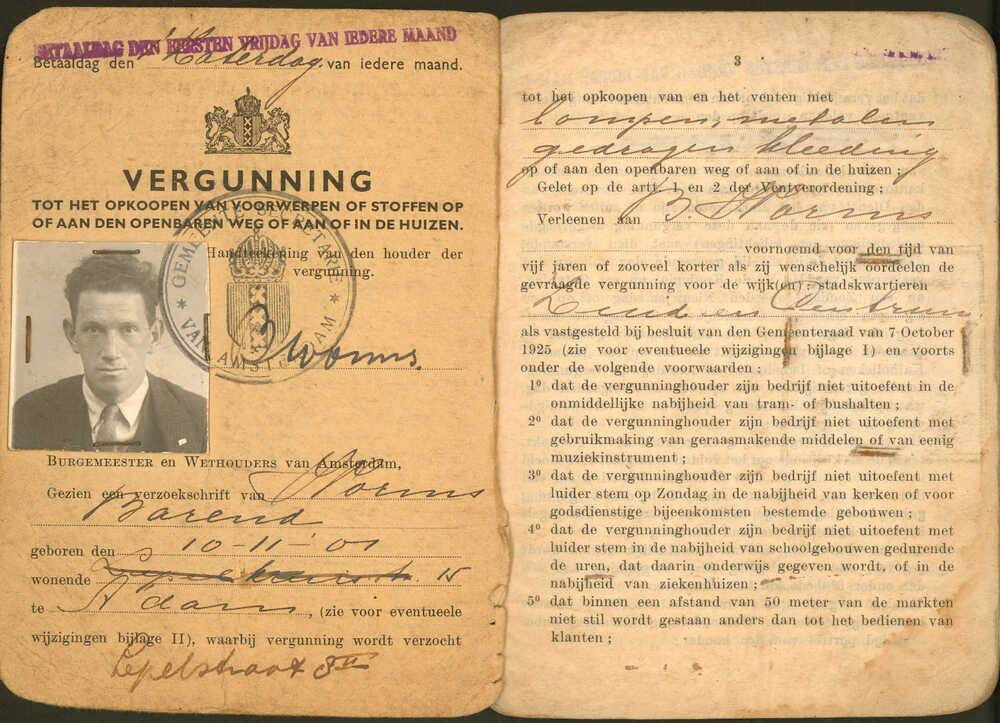 BETAALDAG DEN EERSTEN VRIJDAG VAN IEDERE MAAND
Betaaldag den Zaterdag van iedere maand.
VERGUNNING
TOT HET OPKOOPEN VAN VOORWERPEN OF STOFFEN OP
OF AAN DEN OPENBAREN WEG OF AAN OF IN DE HUIZEN.
Handteekening van den houder der
vergunning.
GEMEENTE SECRETARIE VAN AMSTERDAM
B Worms.
BURGEMEESTER en WETHOUDERS van Amsterdam,
Gezien een verzoekschrift van Worms
Barend
geboren den 10-11-'01
wonende 15
te A'dam, (zie voor eventueele
wijzigingen bijlage II), waarbij vergunning wordt verzocht
Lepelstraat 8 II
3
tot het opkoopen van en het venten met
lompen, metalen
gedragen kleeding
op of aan den openbaren weg of aan of in de huizen;
Gelet op de artt. 1 en 2 der Ventverordening;
Verleenen aan B. Worms
voornoemd voor den tijd van
vijf jaren of zooveel korter als zij wenschelijk oordeelen de
gevraagde vergunning voor de wijk(en): stadskwartieren
Zuid en Centrum
als vastgesteld bij besluit van den Gemeenteraad van 7 October
1925 (zie voor eventueele wijzigingen bijlage I) en voorts
onder de volgende voorwaarden:
1° dat de vergunninghouder zijn bedrijf niet uitoefent in de
onmiddellijke nabijheid van tram- of bushalten;
2° dat de vergunninghouder zijn bedrijf niet uitoefent met
gebruikmaking van geraasmakende middelen of van eenig
muziekinstrument;
3° dat de vergunninghouder zijn bedrijf niet uitoefent met
luider stem op Zondag in de nabijheid van kerken of voor
godsdienstige bijeenkomsten bestemde gebouwen;
4° dat de vergunninghouder zijn bedrijf niet uitoefent met
luider stem in de nabijheid van schoolgebouwen gedurende
de uren, dat daarin onderwijs gegeven wordt, of in de
nabijheid van ziekenhuizen;
5° dat binnen een afstand van 50 meter van de markten
niet stil wordt gestaan anders dan tot het bedienen van
klanten;